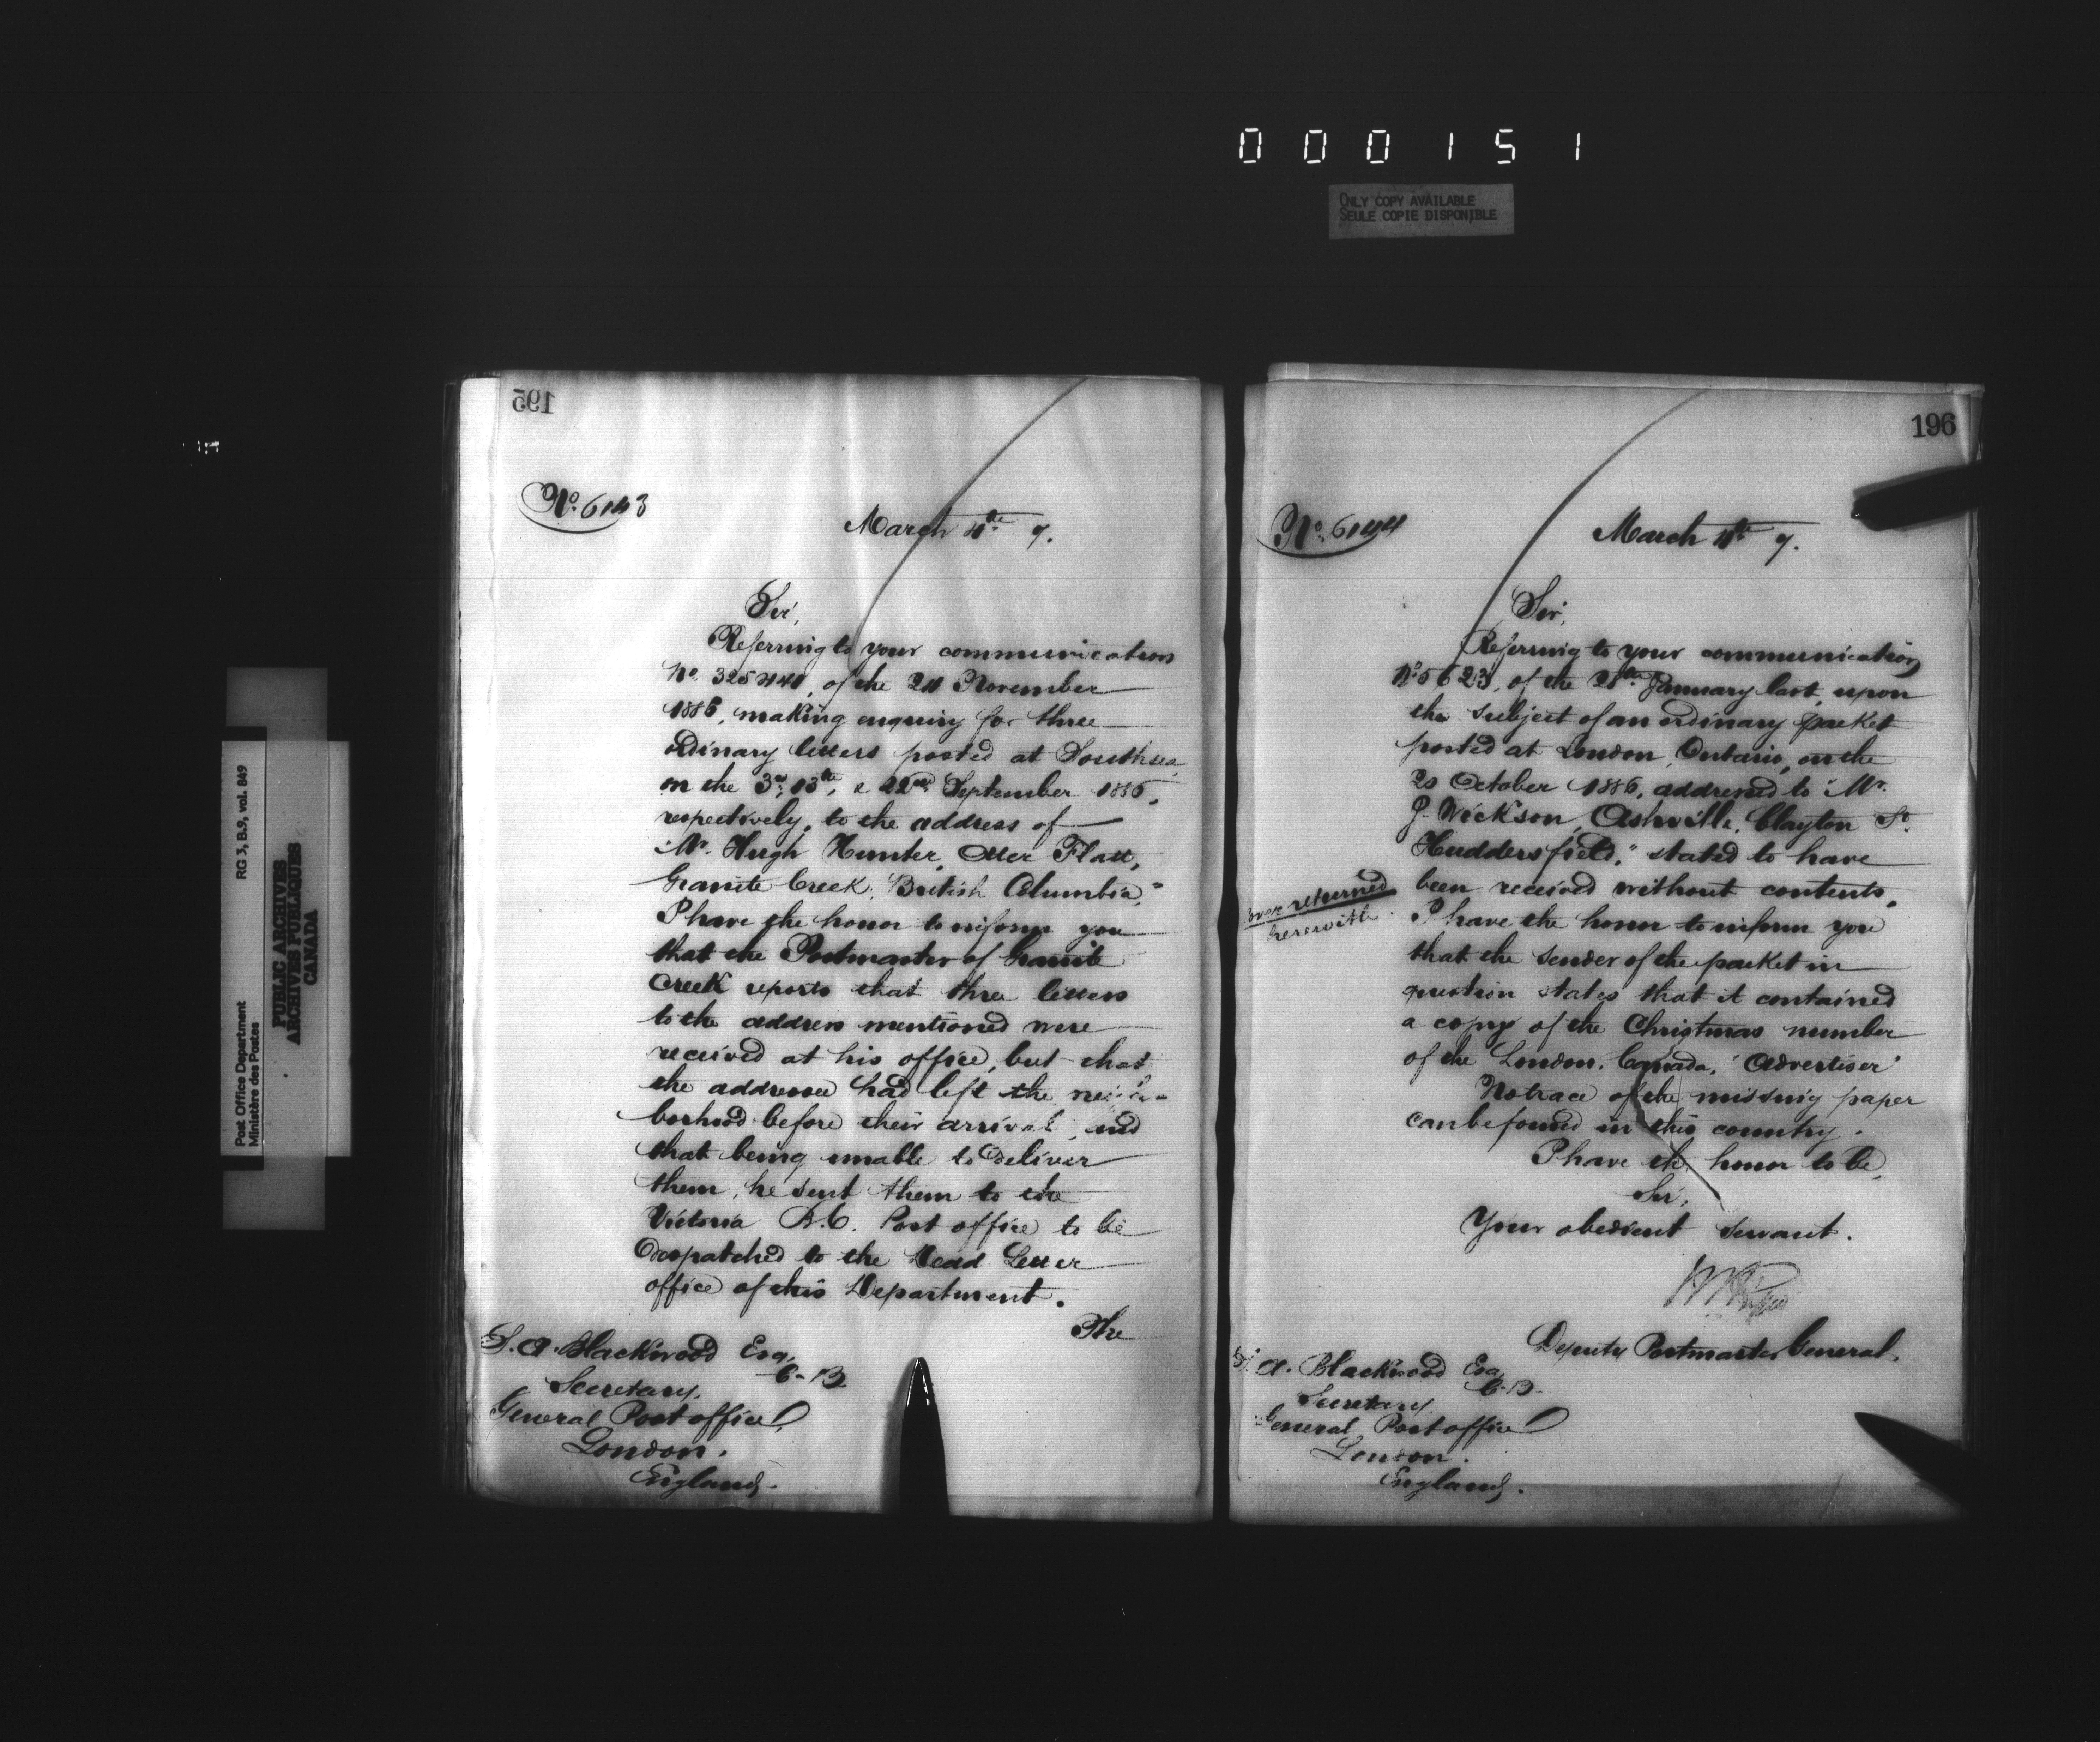 000151
ONLY COPY AVAILABLE
SEULE COPIE DISPONIBLE
Post Office Department
Ministère des Postes
RG 3, B.9, vol. 849
PUBLIC ARCHIVES
ARCHIVES PUBLIQUES
CANADA
195
No. 6143
March 4th 7.
Sir,
Referring to your communication
No. 325440, of the 24 November
1886, making enquiry for three
ordinary letters posted at Southsea
on the 3rd, 13th, & 22nd September 1886,
respectively, to the address of
"Mr. Hugh Hunter, Otter Flatt,
Granite Creek, British Columbia,"
I have the honor to inform you
that the Postmaster of Granite
Creek reports that three letters
to the address mentioned were
received at his office, but that
the addressee had left the neigh-
borhood before their arrival, and
that being unable to deliver
them, he sent them to the
Victoria B.C. Post office to be
despatched to the Dead Letter
office of this Department.
The
S. A. Blackwood Esq,
C.B.
Secretary,
General Post office,
London.
England.
196
No. 6144
March 4th 7.
Sir,
Referring to your communication
No. 5623, of the 28th January last, upon
the subject of an ordinary packet
posted at London, Ontario, on the
20 October 1886, addressed to "Mr.
J. Wickson, Ashville, Clayton St.
Huddersfield," stated to have
been received without contents,
cover returned
herewith.
I have the honor to inform you
that the sender of the packet in
question states that it contained
a copy of the Christmas number
of the London, Canada, 'Advertiser'
No trace of the missing paper
can be found in this country.
I have the honor to be,
Sir,
Your obedient servant.
Deputy Postmaster General.
S. A. Blackwood Esq,
C.B.
Secretary
General Post office
London.
England.